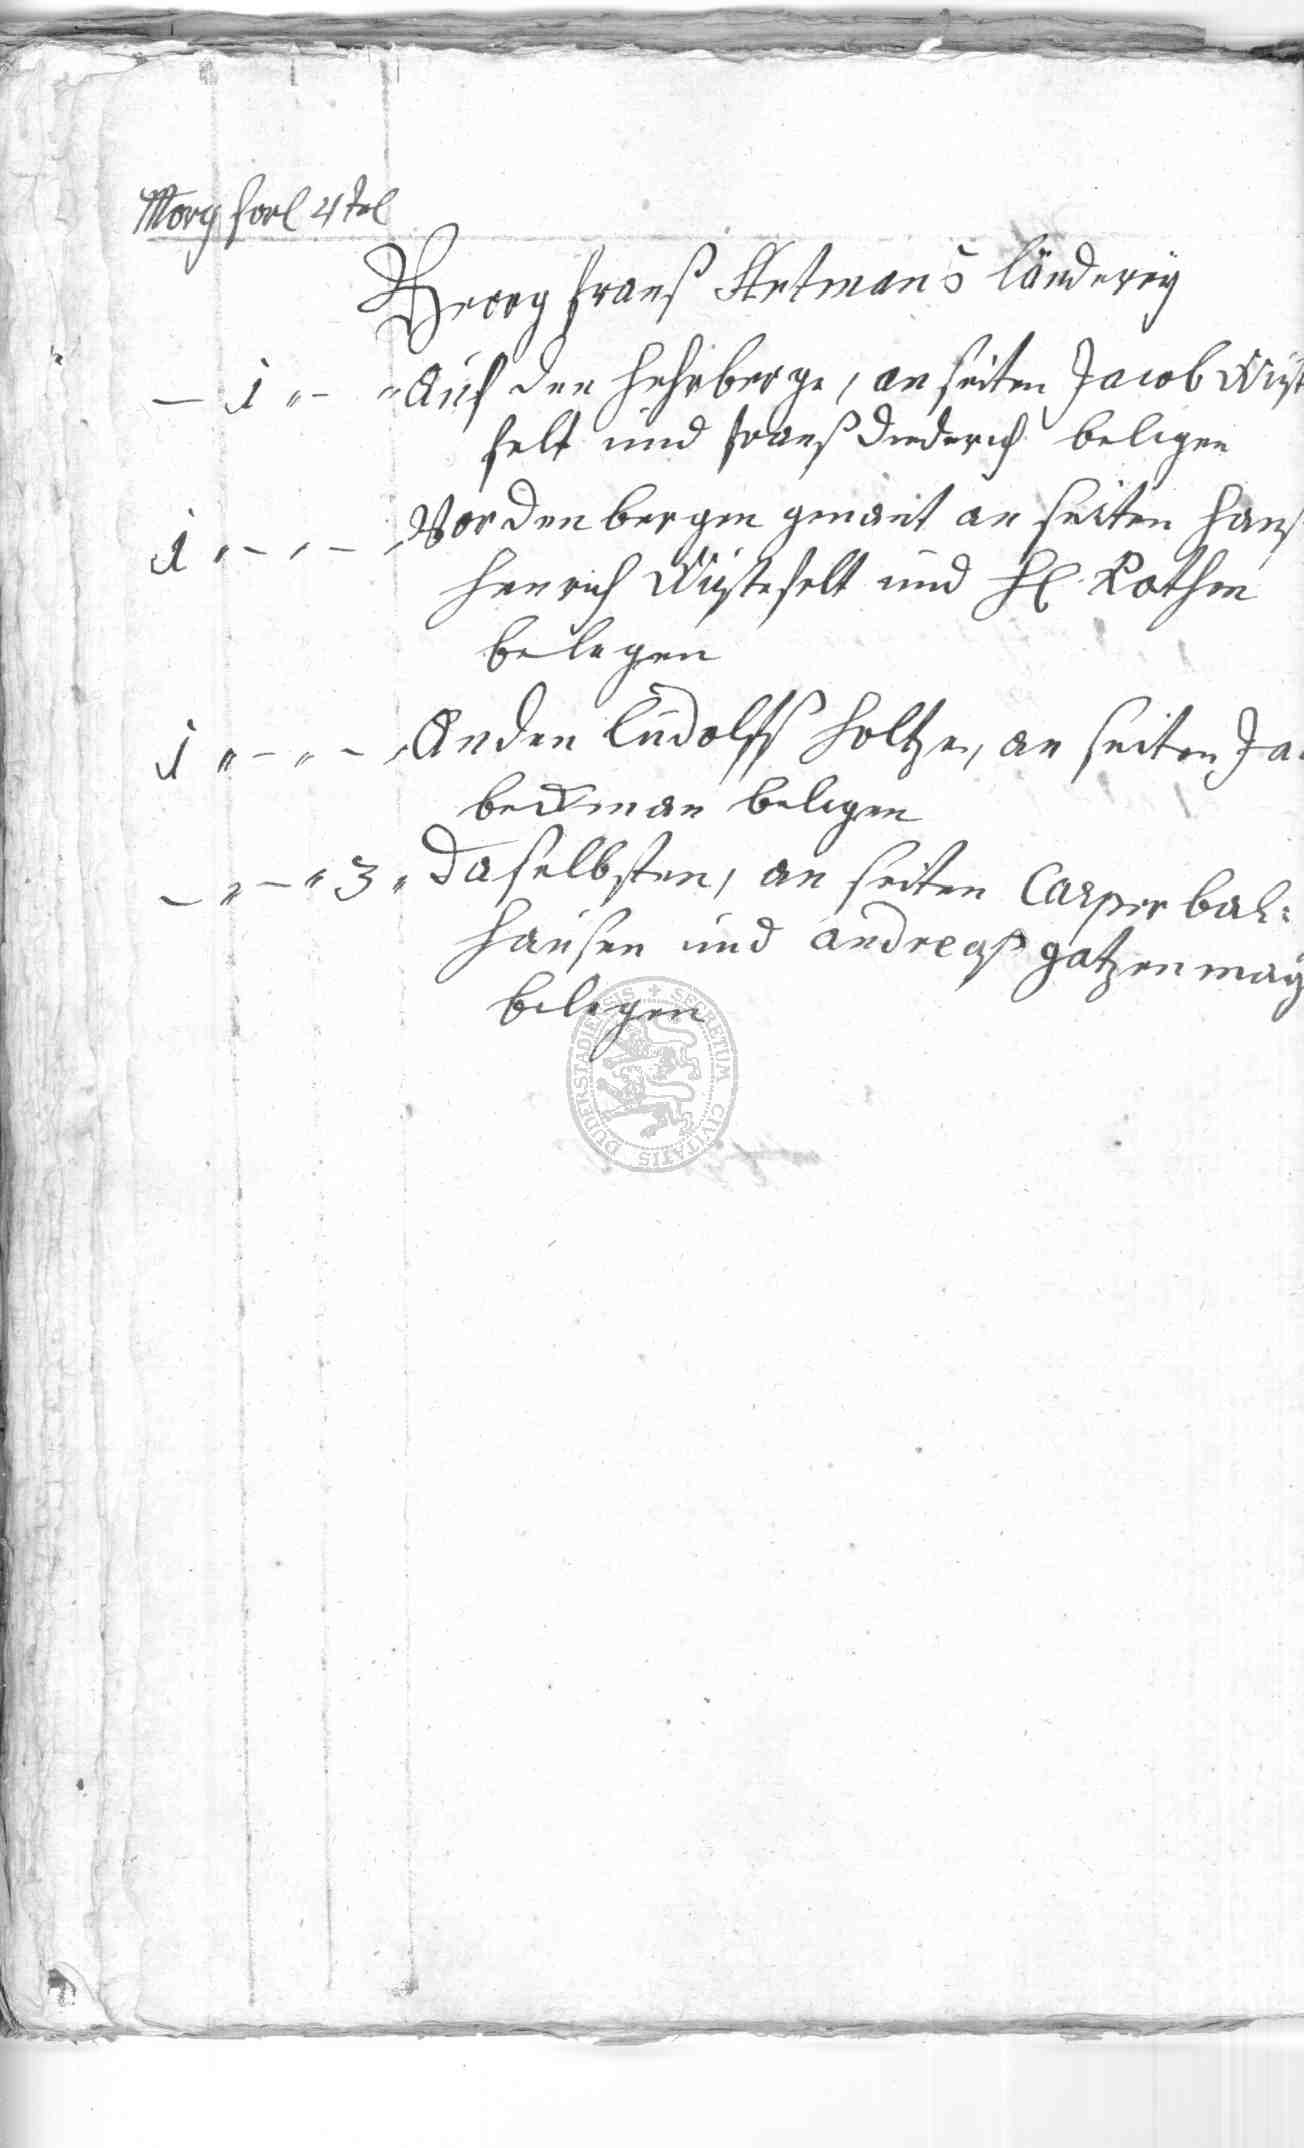 Morg forl 4tel
Georg Frantz Artmans länderey
– 1 " – " Auf den Hehrberge, an seiten Jacob Wüst
felt und Frantz Diederich belegen
1 " – " – " Vor den bergen genant an seiten Hans
Henrich Wüstefelt und H. Rothen
belegen
1 " – " – " An den Ludolffs holtze, an seiten Ja
beckman belegen
– " – " 3 " Daselbsten, an seiten Casper bal:
hausen und andreas gatzenmay
belegen
SECRETUM CIVITATIS DUDERSTADIENSIS